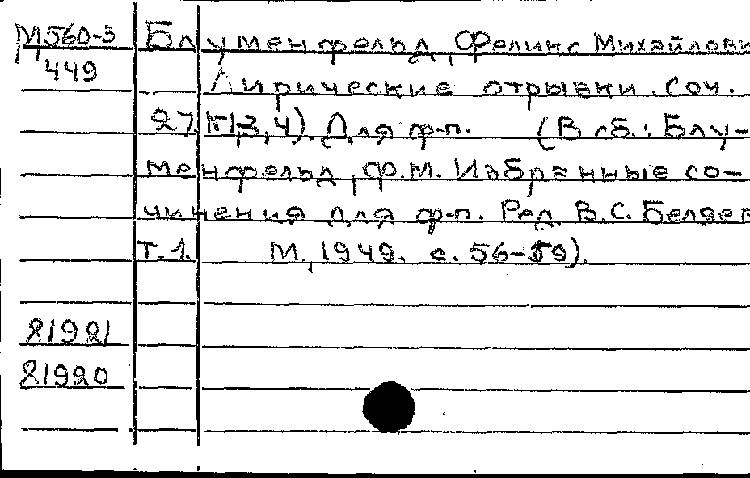 М560-3 Блуменфельд, Феликс Михайлович
449 Лирические отрывки. Соч.
27. (1,3,4). Для ф-п. (В сб.: Блу-
менфельд, Ф.М. Избранные со-
чинения для ф-п. Ред. В.С. Беляев
Т.1. М., 1949. с. 56-59).
21921
21920